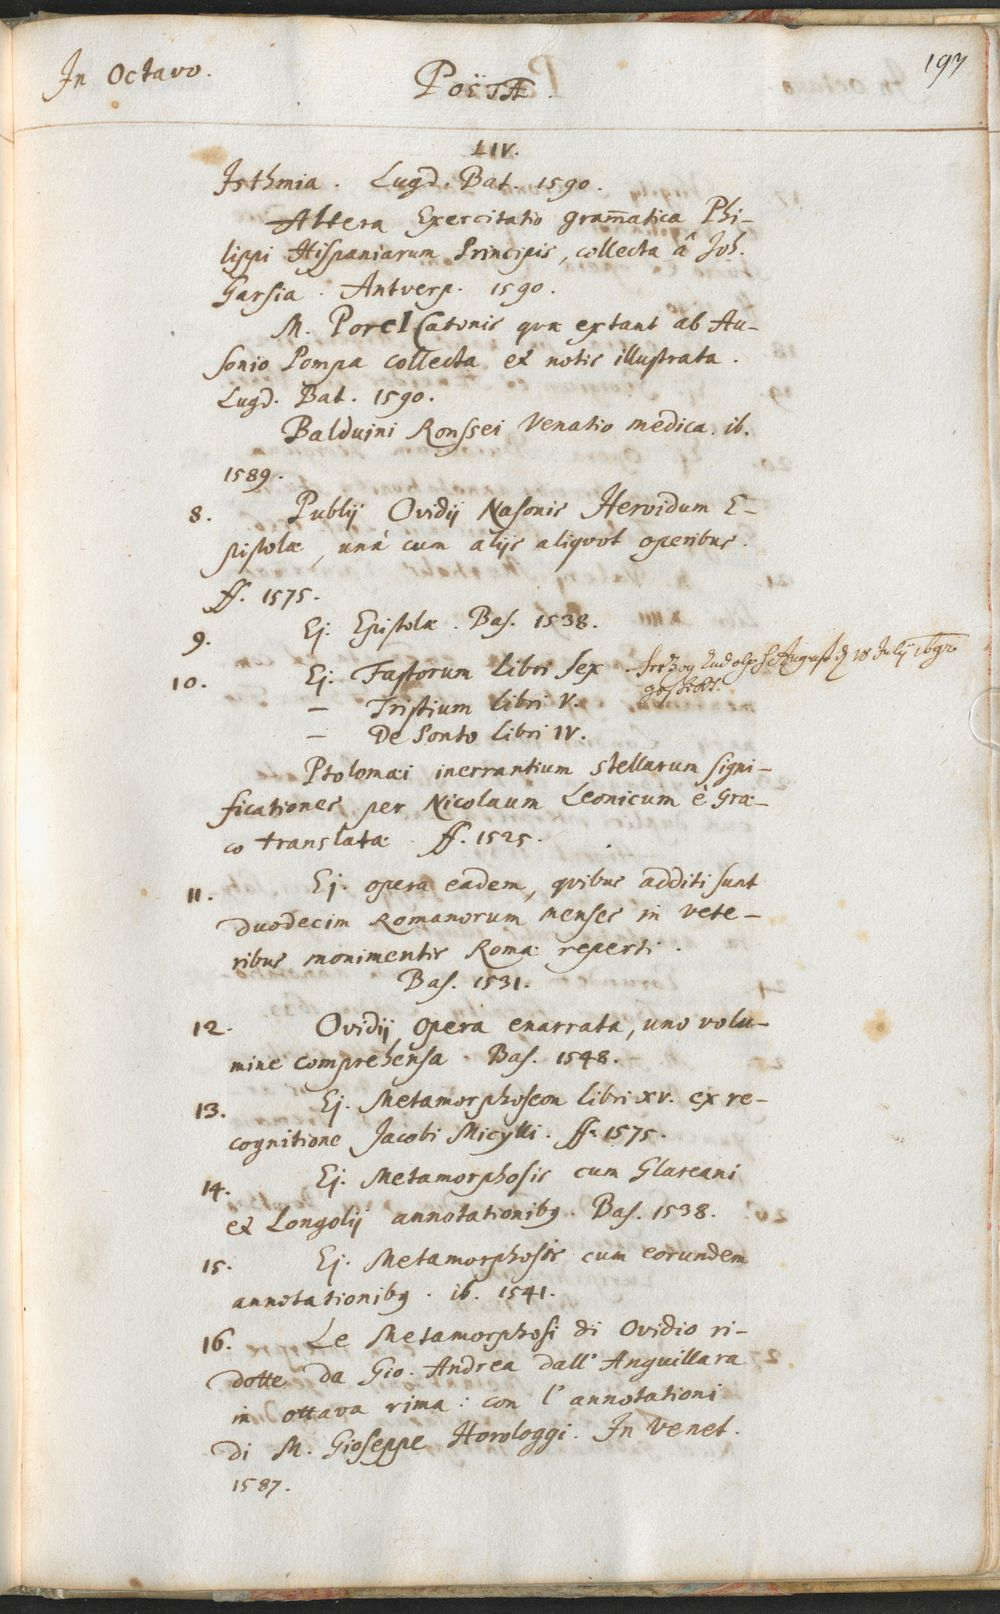 In Octavo.
Poëtæ.
197
LIV.
Isthmia. Lugd. Bat. 1590.
Altera Exercitatio grammatica Phi-
lippi Hispaniarum Principis, collecta â Joh.
Garsia. Antverp. 1590.
M. Porcl Catonis quæ extant ab Au-
sonio Pompa collecta et notis illustrata.
Lugd. Bat. 1590.
Balduini Ronssei Venatio medica. ib.
1589.
8. Publij Ovidij Nasonis Heroidum E-
pistolæ, unà cum alijs aliquot operibus.
ff. 1575.
9. Ej. Epistolæ. Bas. 1538.
10. Ej. Fastorum libri sex. Herzog Rudolph August 18 Julij
— Tristium libri V.
— De Ponto libri IV.
Ptolomæi inerrantium stellarum signi-
ficationes per Nicolaum Leonicum è Græ-
co translatæ. ff. 1525.
11. Ej. opera eadem, quibus additi sunt
duodecim Romanorum menses in vete-
ribus monimentis Romæ reperti.
Bas. 1531.
12. Ovidij opera enarrata, uno volu-
mine comprehensa. Bas. 1548.
13. Ej. Metamorphoseon libri xv. ex re-
cognitione Jacobi Micylli. ff. 1575.
14. Ej. Metamorphosis cum Glareani
et Longolij annotationibꝯ. Bas. 1538.
15. Ej. Metamorphosis cum eorundem
annotationibꝯ. ib. 1541.
16. Le Metamorphosi di Ovidio ri-
dotte da Gio. Andrea dall' Anguillara
in ottava rima: con l' annotationi
di M. Gioseppe Horologgi. In Venet.
1587.